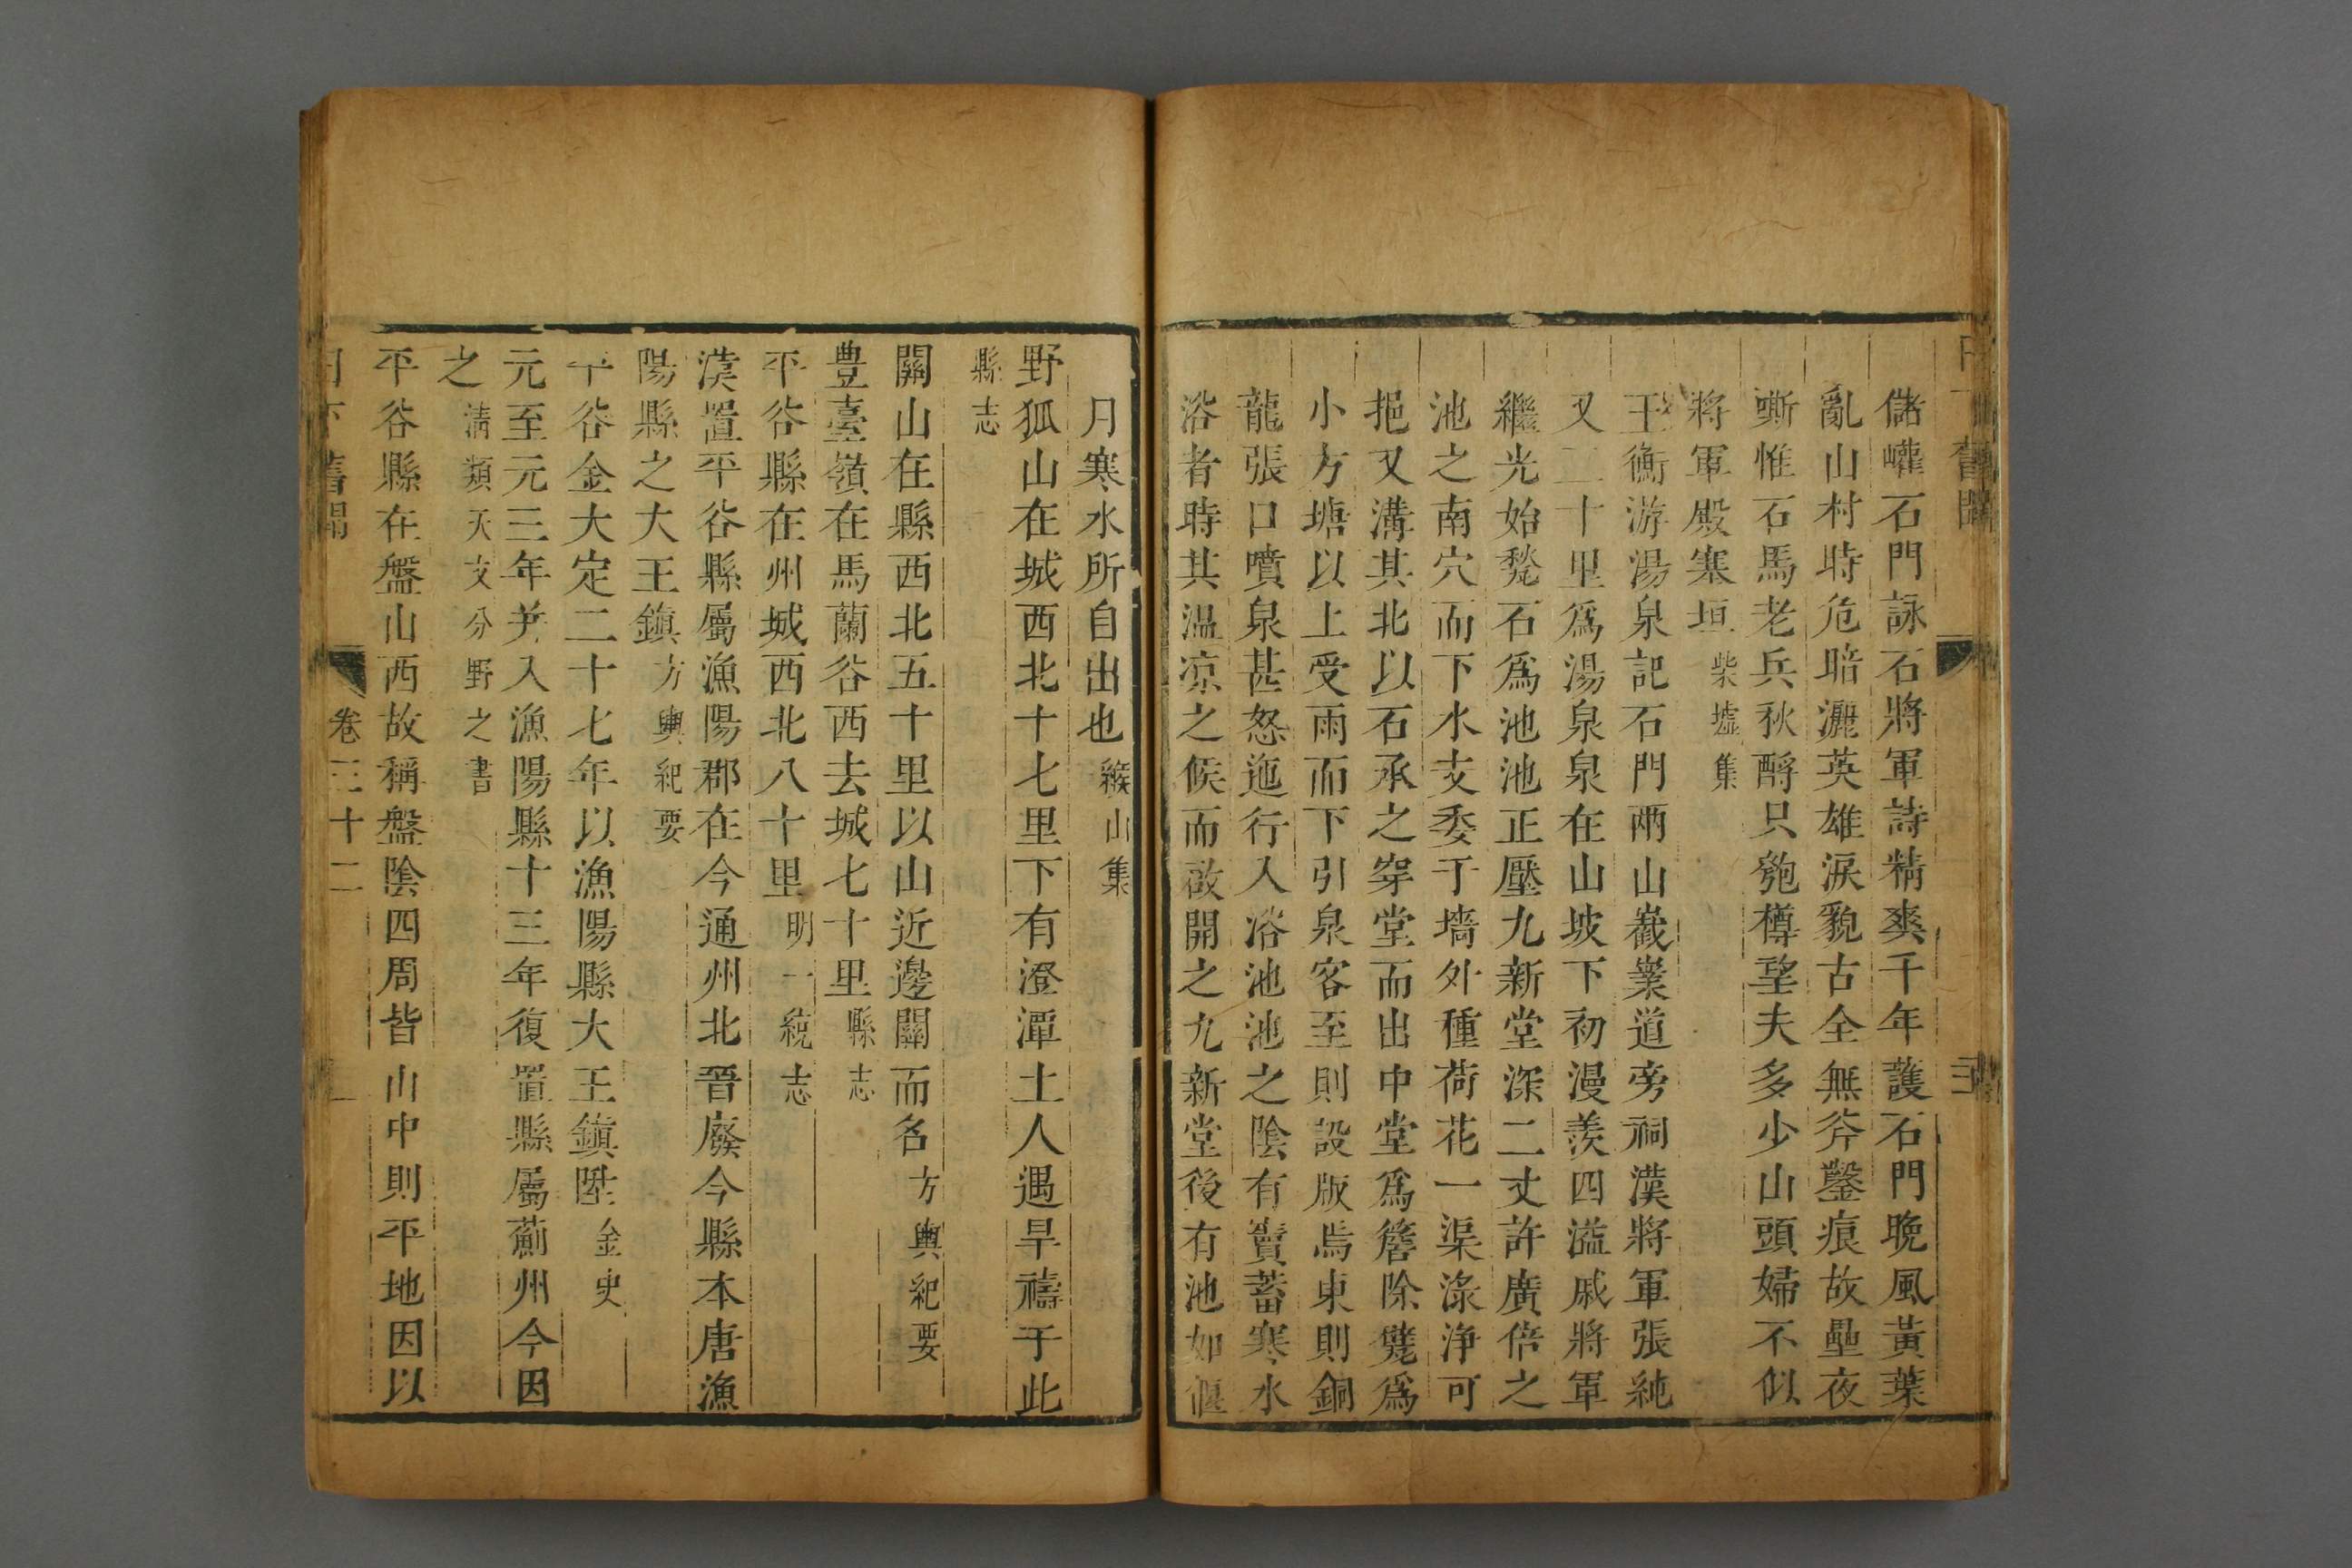 日下舊聞
三
儲巏石門詠石將軍詩精爽千年護石門晚風黃葉
亂山村時危暗灑英雄淚貌古全無斧鑿痕故壘夜
嘶惟石馬老兵秋酹只匏樽望夫多少山頭婦不似
將軍殿塞垣柴墟集
王衡游湯泉記石門兩山嶻嶪道旁祠漢將軍張純
又二十里爲湯泉泉在山坡下初漫羨四溢戚將軍
繼光始甃石爲池池正壓九新堂深二丈許廣倍之
池之南穴而下水支委于墻外種荷花一渠淥淨可
挹又溝其北以石承之穿堂而出中堂爲簷除甃爲
小方塘以上受雨而下引泉客至則設版焉東則銅
龍張口噴泉甚怒迤行入浴池池之陰有竇蓄寒水
浴者時其溫凉之候而啟開之九新堂後有池如偃
月寒水所自出也緱山集
野狐山在城西北十七里下有澄潭土人遇旱禱于此
縣志
關山在縣西北五十里以山近邊關而名方輿紀要
豊臺嶺在馬蘭谷西去城七十里縣志
平谷縣在州城西北八十里明一統志
漢置平谷縣屬漁陽郡在今通州北晉廢今縣本唐漁
陽縣之大王鎮方輿紀要
平谷金大定二十七年以漁陽縣大王鎮陞金史
元至元三年并入漁陽縣十三年復置縣屬薊州今因
之清類天文分野之書
平谷縣在盤山西故稱盤陰四周皆山中則平地因以
日下舊聞
卷三十二